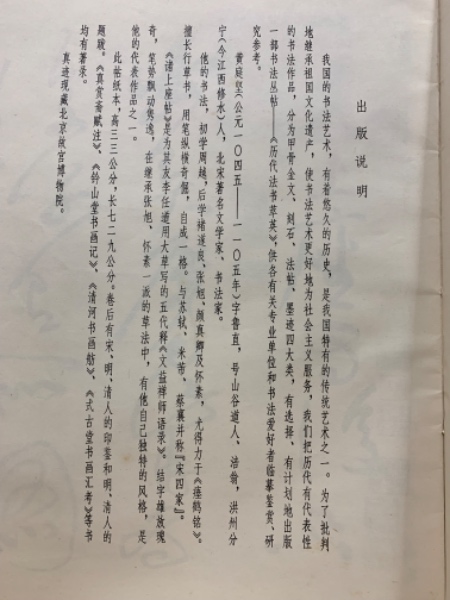 出版说明
我国的书法艺术，有着悠久的历史，是我国特有的传统艺术之一。为了批判
地继承祖国文化遗产，使书法艺术更好地为社会主义服务，我们把历代有代表性
的书法作品，分为甲骨金文、刻石、法帖、墨迹四大类，有选择、有计划地出版
一部书法丛帖——《历代法书萃英》，供各有关专业单位和书法爱好者临摹、鉴赏、研
究参考。
黄庭坚（公元一〇四五——一一〇五年）字鲁直，号山谷道人、涪翁，洪州分
宁（今江西修水）人，北宋著名文学家、书法家。
他的书法，初学周越，后学褚遂良、张旭、颜真卿及怀素，尤得力于《瘗鹤铭》。
擅长行草书，用笔纵横奇倔，自成一格。与苏轼、米芾、蔡襄并称『宋四家』。
《诸上座帖》是为其友李任道用大草写的五代释《文益禅师语录》。结字雄放瑰
奇，笔势飘动隽逸，在继承张旭、怀素一派的草法中，有他自己独特的风格，是
他的代表作品之一。
此帖纸本，高三三公分，长七二九公分。卷后有宋、明、清人的印鉴和明、清人的
题跋。《真赏斋赋注》、《钤山堂书画记》、《清河书画舫》、《式古堂书画汇考》等书
均有著录。
真迹现藏北京故宫博物院。